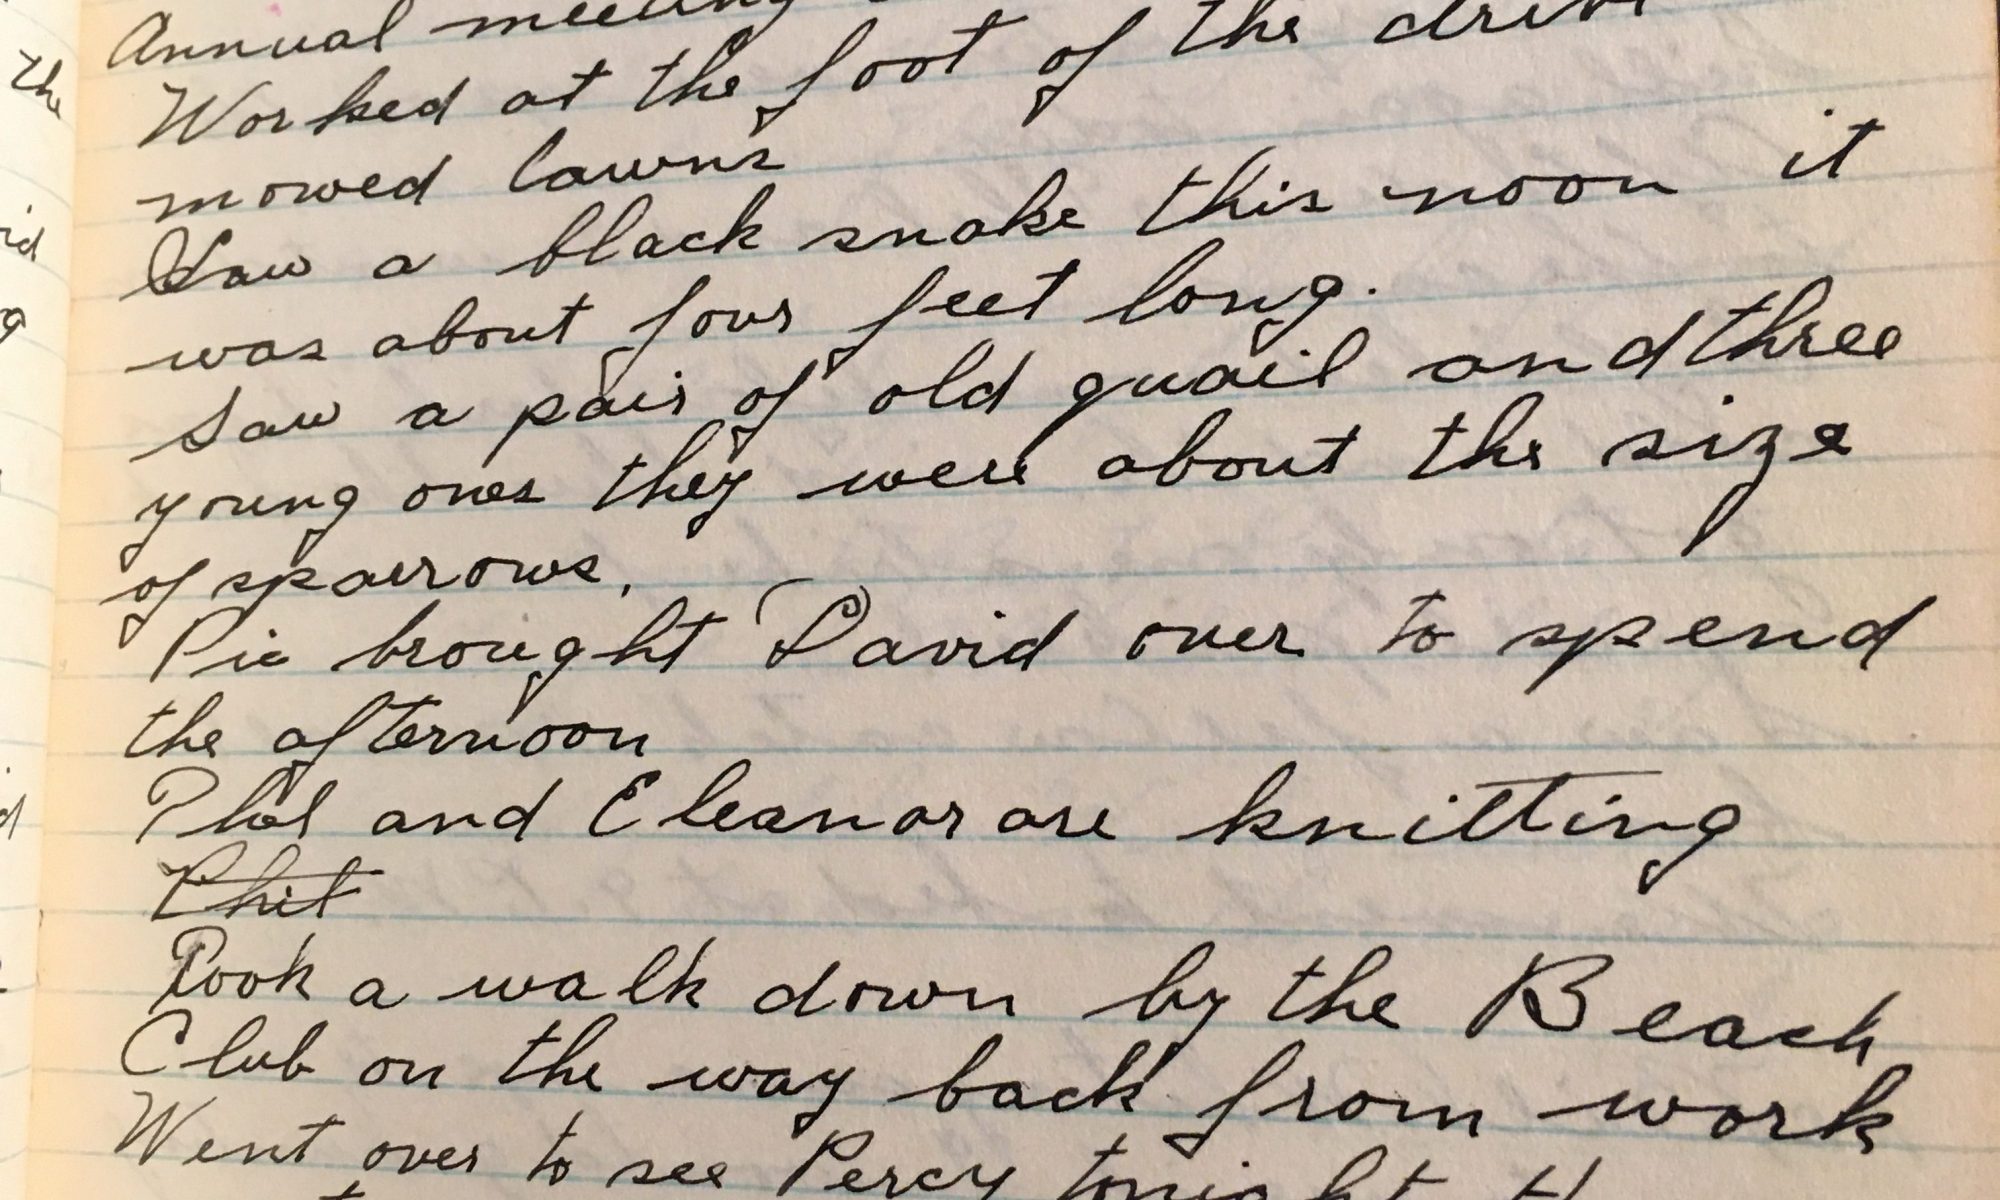 Annual meeting
Worked at the foot of the drive
mowed lawns
Saw a black snake this noon it
was about four feet long.
Saw a pair of old quail and three
young ones they were about the size
of sparrows.
Pie brought David over to spend
the afternoon
Phil and Eleanor are knitting
Phil
Took a walk down by the Beach
Club on the way back from work
Went over to see Percy tonight